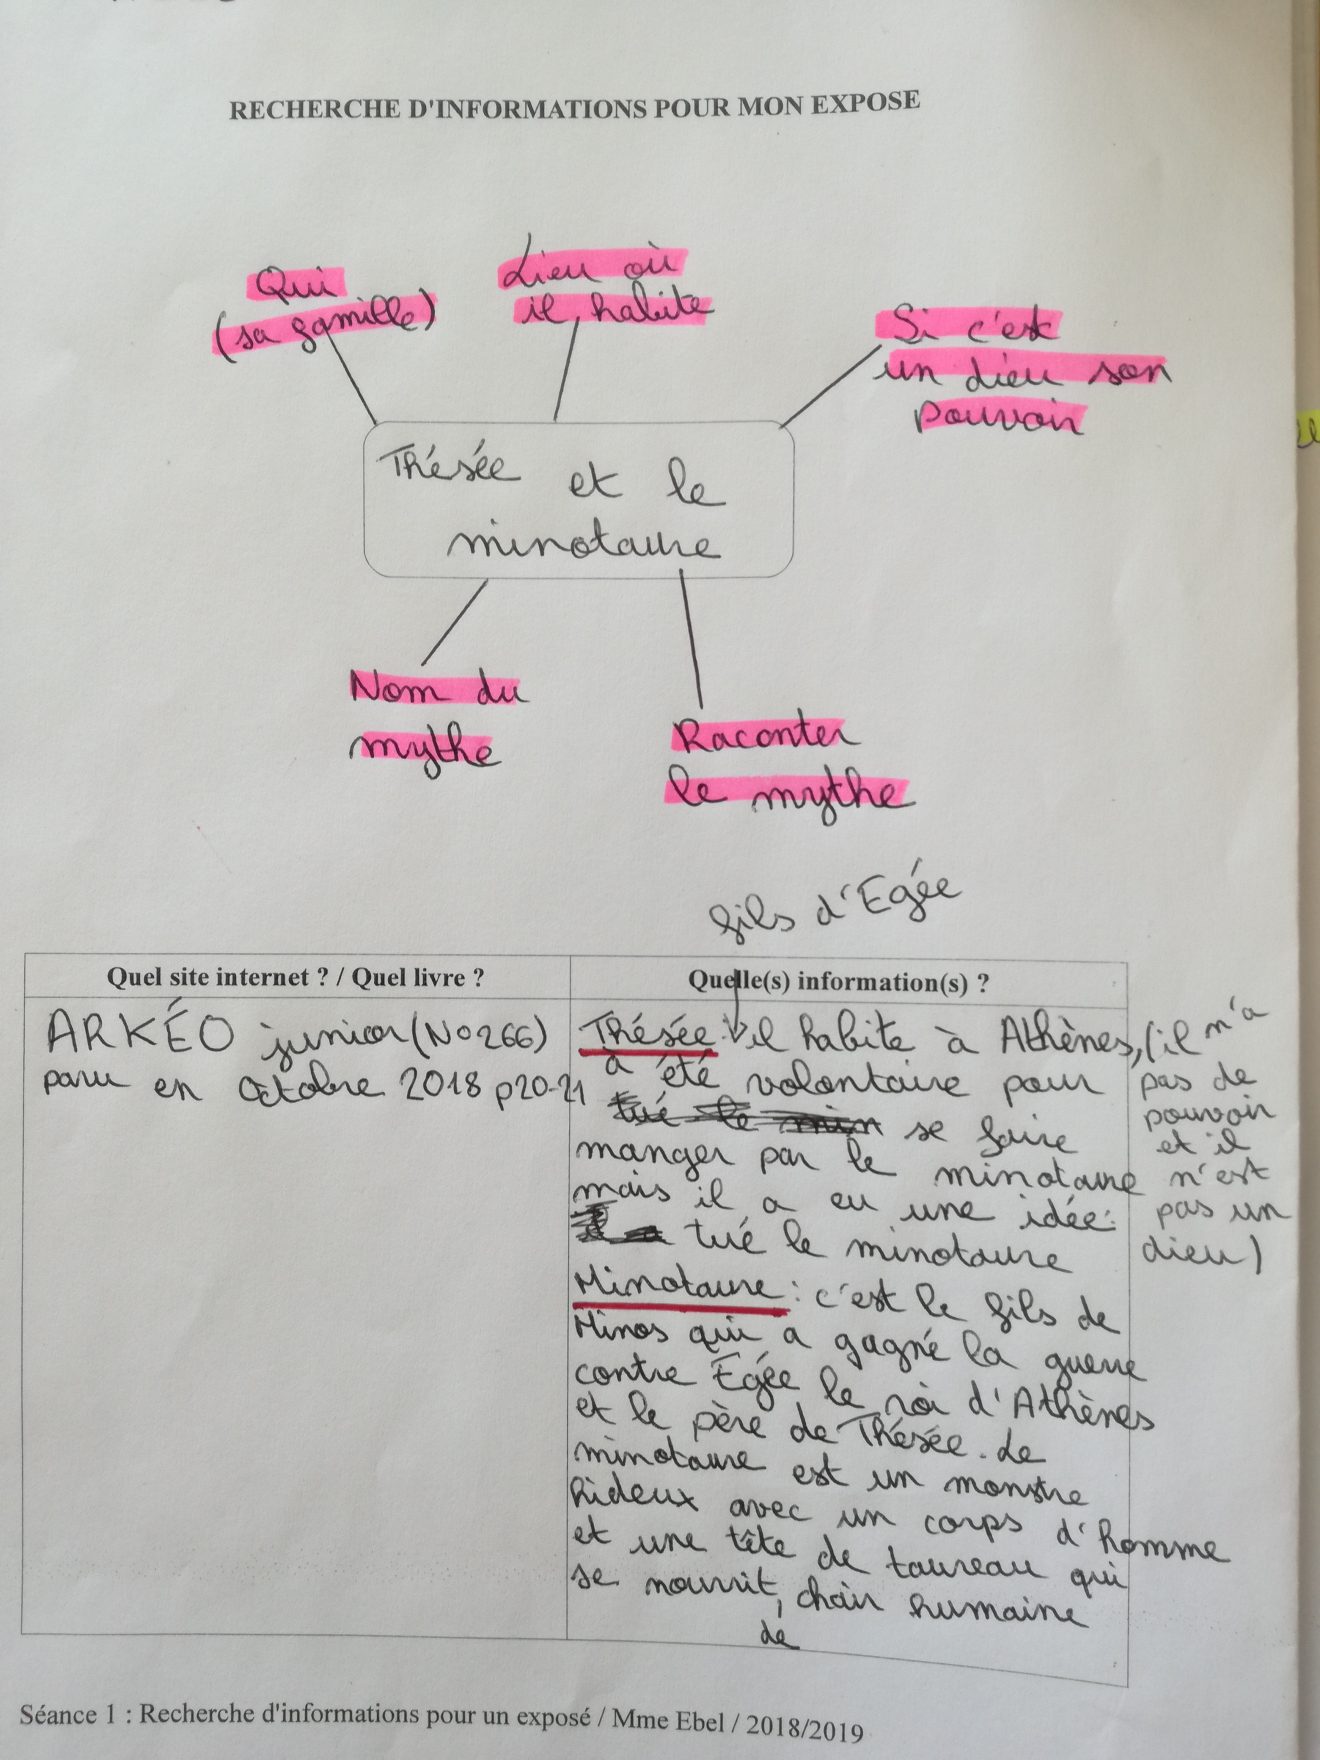 RECHERCHE D'INFORMATIONS POUR MON EXPOSE
Qui
(sa famille)
Lieu où
il habite
Si c'est
un dieu son
pouvoir
Thésée et le
minotaure
Nom du
mythe
Raconter
le mythe
fils d'Egée
Quel site internet ? / Quel livre ?
Quelle(s) information(s) ?
ARKÉO junior (No 266)
paru en Octobre 2018 p20-21
Thésée : il habite à Athènes, (il n'a
a été volontaire pour
tué le min se faire
manger par le minotaure
mais il a eu une idée :
tué le minotaure
pas de
pouvoir
et il
n'est
pas un
dieu)
Minotaure : c'est le fils de
Minos qui a gagné la guerre
contre Egée le roi d'Athènes
et le père de Thésée. Le
minotaure est un monstre
hideux avec un corps d'homme
et une tête de taureau qui
se nourrit, chair humaine
de
Séance 1 : Recherche d'informations pour un exposé / Mme Ebel / 2018/2019